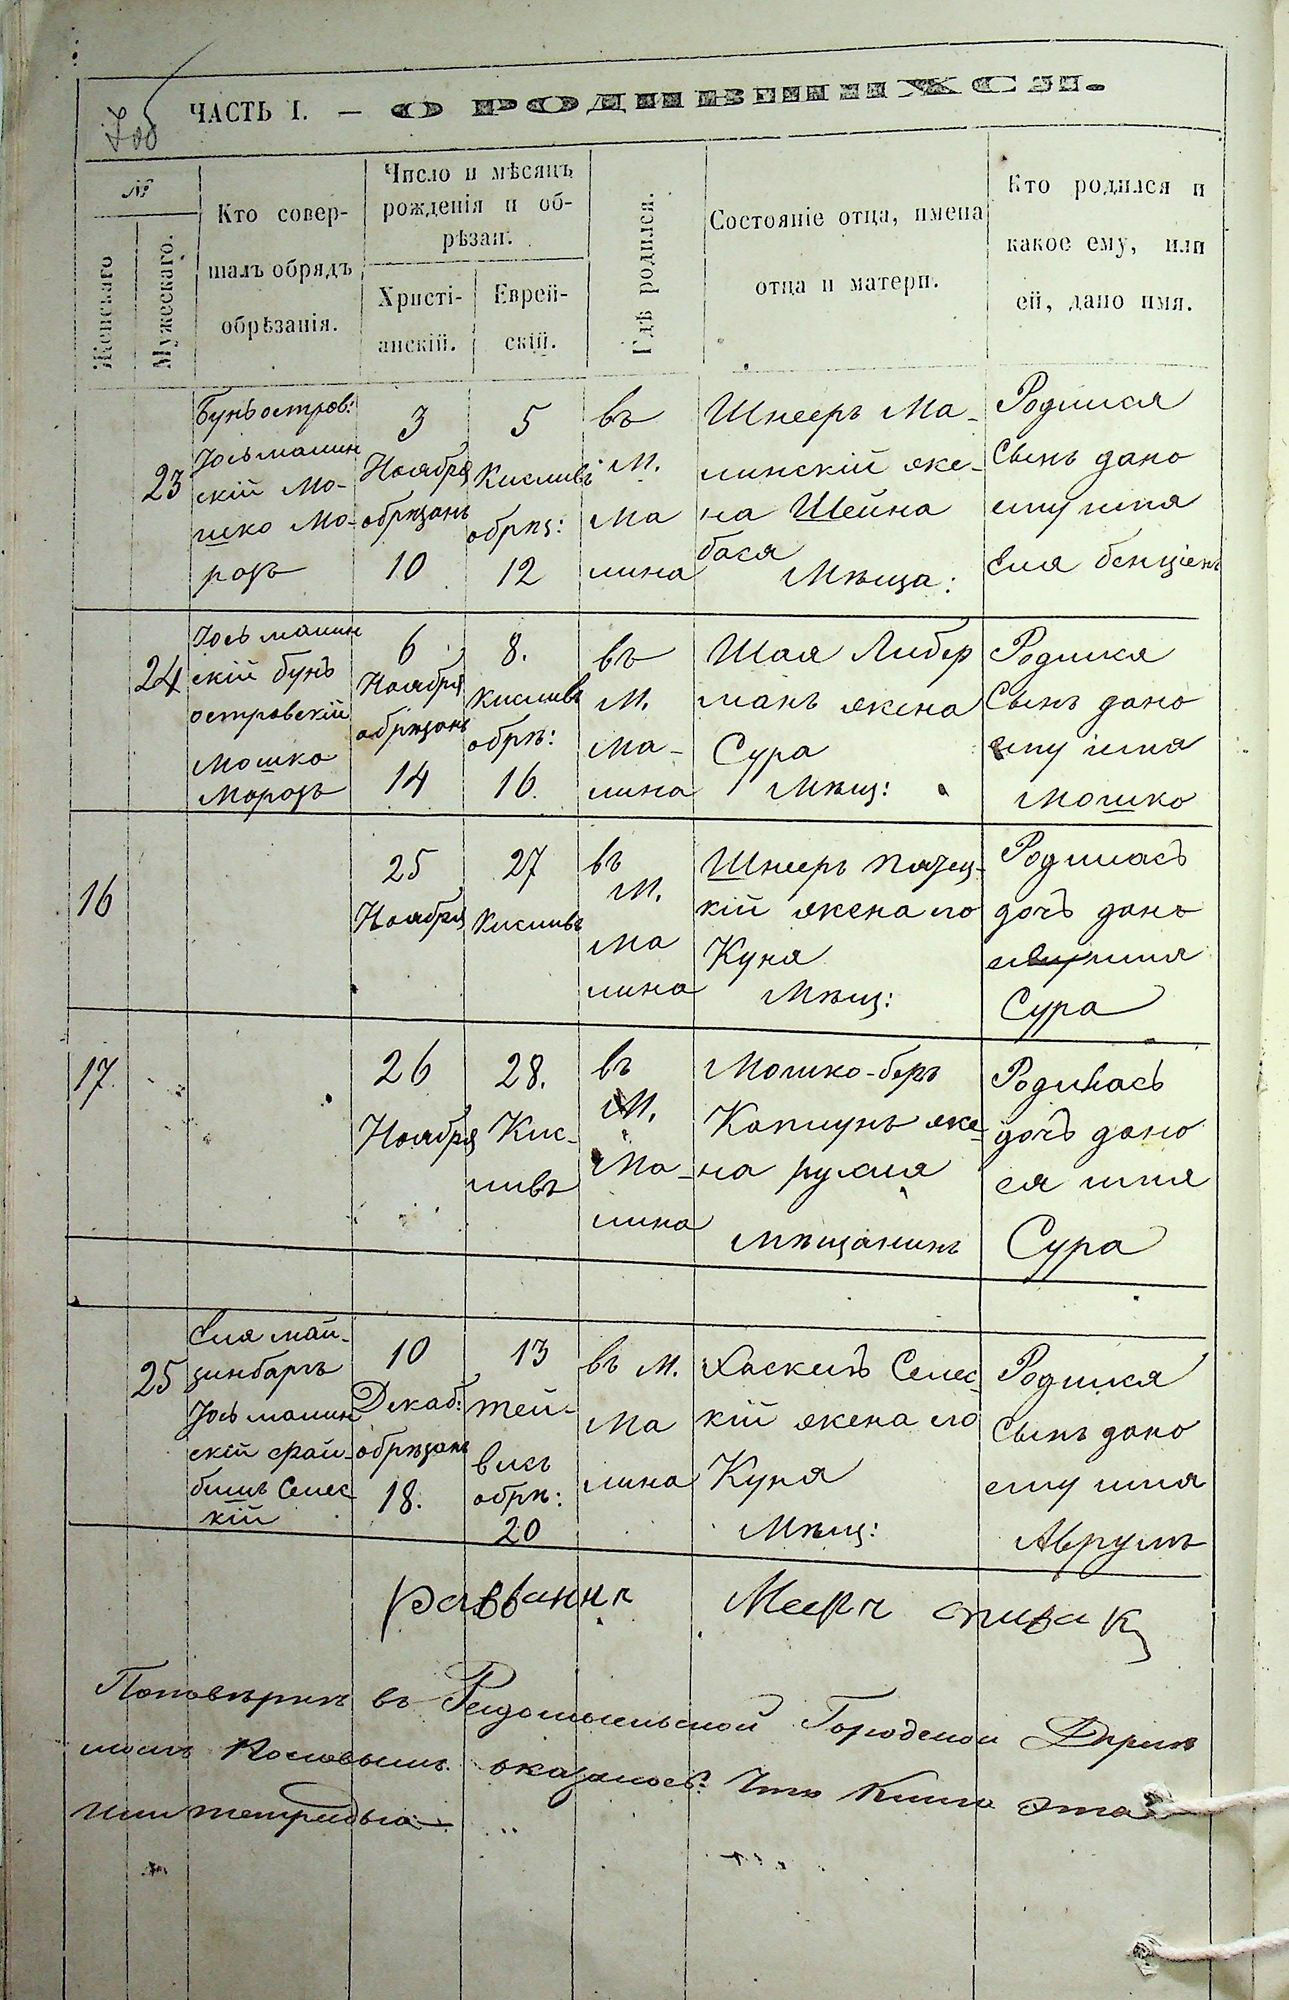 ЧАСТЬ I. — О РОДИВШИХСЯ.
№
Женскаго
Мужескаго.
Кто совер-
шалъ обрядъ
обрѣзанія.
Число и мѣсяцъ
рожденія и об-
рѣзан.
Христі-
анскій.
Еврей-
скій.
Гдѣ родился.
Состояніе отца, имена
отца и матери.
Кто родился и
какое ему, или
ей, дано имя.
23
Бунъ остров:
Іось малин
скій Мо-
шко Мо-
розъ
3
Ноября
обрѣзанъ
10
5
Кисливъ
обрѣз:
12
въ
М.
Ма
лина
Шнееръ Ма-
линскій же-
на Шейна
бася
Мѣща:
Родился
Сынъ дано
ему имя
Еля бенціенъ
24
Іось малин
скій бунъ
островскій
Мошко
Морозъ
6
Ноября
обрѣзанъ
14
8.
Кисливъ
обрѣ:
16.
въ
М.
Ма-
лина
Шая Либер
манъ жена
Сура
Мѣщ:
Родился
Сынъ дано
ему имя
Мошко
16
25
Ноября
27
Кисливъ
въ
М.
Ма
лина
Шнееръ
кій жена его
Куня
Мѣщ:
Родилась
дочъ дано
имя
Сура
17.
26
Ноября
28.
Кис-
ливъ
въ
М.
Ма-
лина
Мошко-беръ
же-
на рухля
мѣщанинъ
Родилась
дочъ дано
ея имя
Сура
25
Еля май-
зинбаргъ
Іось малин
скій фай-
бишъ Селес
кій
10
Декаб:
обрѣзанъ
18.
13
тей-
висъ
обрѣ:
20
въ М.
Ма
лина
Хаскилъ Селес-
кій жена его
Куня
Мѣщ:
Родился
Сынъ дано
ему имя
Аврумъ
раввинъ Мееръ спивак
въ Радомысльской Городской
оказалось: Что Книга эта
или тетрадью